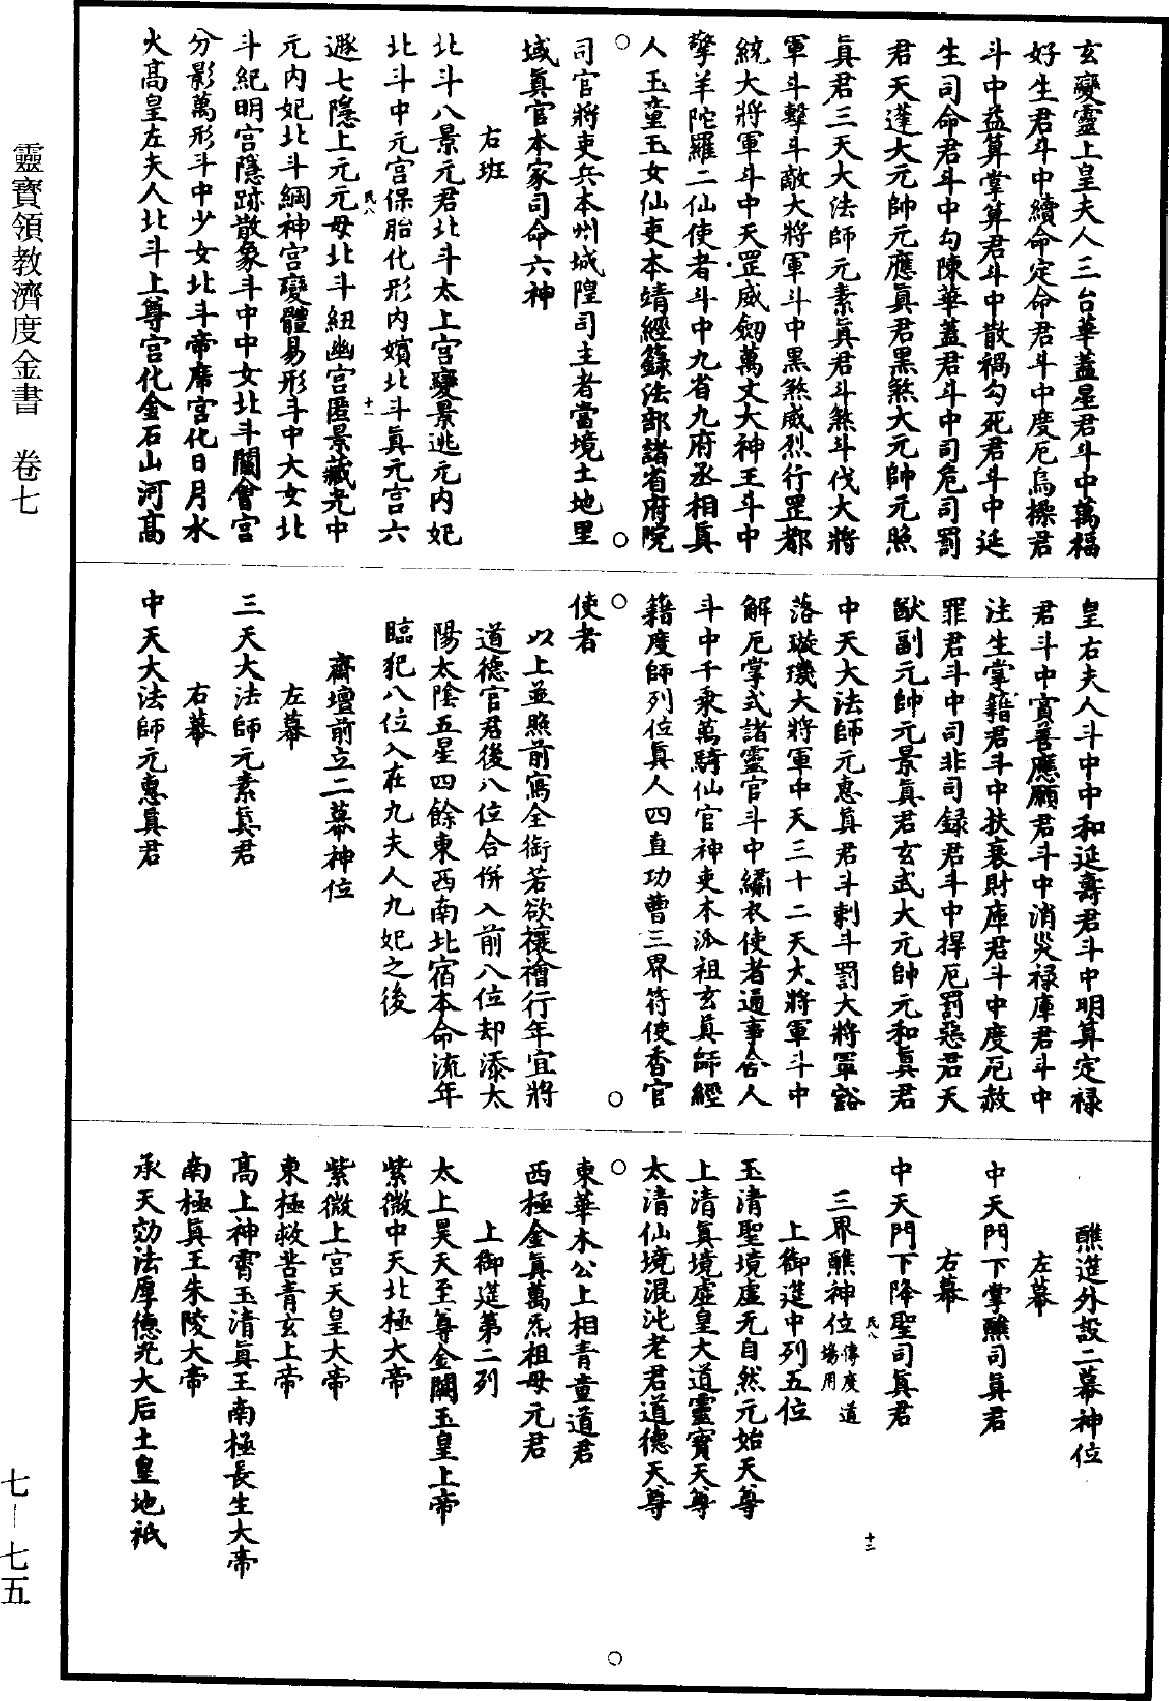 玄變靈上皇夫人三台華蓋星君斗中萬福
好生君斗中續命定命君斗中度厄烏橾君
斗中益算掌算君斗中散禍勾死君斗中延
生司命君斗中勾陳華蓋君斗中司危司罰
君天蓬大元帥元應眞君黑煞大元帥元照
眞君三天大法師元素眞君斗煞斗伐大將
軍斗擊斗敵大將軍斗中黑煞威烈行罡都
統大將軍斗中天罡威劒萬丈大神王斗中
擎羊陀羅二仙使者斗中九省九府丞相眞
人玉童玉女仙吏本靖經籙法部諸省府院
○　○
司官將吏兵本州城隍司主者當境土地里
域眞官本家司命六神
右班
北斗八景元君北斗太上宫變景逃元内妃
北斗中元宫保胎化形内嬪北斗眞元宫六
民八　十一
遐七隱上元元母北斗紐幽宫匿景藏光中
元内妃北斗綱神宫變體易形斗中大女北
斗紀明宫隱跡散象斗中中女北斗關會宫
分影萬形斗中少女北斗帝席宫化日月水
火高皇左夫人北斗上尊宫化金石山河高
皇右夫人斗中中和延壽君斗中明算定禄
君斗中賞善應願君斗中消災禄庫君斗中
注生掌籍君斗中扶衰財庫君斗中度厄赦
罪君斗中司非司録君斗中捍厄罰惡君天
猷副元帥元景眞君玄武大元帥元和眞君
中天大法師元惠眞君斗剌斗罰大將軍豁
落璇璣大將軍中天三十二天大將軍斗中
解厄掌式諸靈官斗中繡衣使者通事舍人
斗中千乘萬騎仙官神吏本派祖玄眞師經
籍度師列位眞人四直功曹三界符使香官
○　○
使者
以上並照前寫全銜若欲禳禬行年宜將
道德官君後八位合併入前八位却添太
陽太陰五星四餘東西南北宿本命流年
臨犯八位入在九夫人九妃之後
齋壇前立二幕神位
左幕
三天大法師元素眞君
右幕
中天大法師元惠眞君
醮筵外設二幕神位
左幕
中天門下掌醮司眞君
右幕
中天門下降聖司眞君
民八　十二
三界醮神位傳度道場用
上御筵中列五位
玉清聖境虚无自然元始天尊
上清眞境虚皇大道靈寳天尊
太清仙境混沌老君道德天尊
○　○
東華木公上相青童道君
西極金眞萬炁祖母元君
上御筵第二列
太上昊天至尊金闕玉皇上帝
紫微中天北極大帝
紫微上宫天皇大帝
東極救苦青玄上帝
高上神霄玉清眞王南極長生大帝
南極眞王朱陵大帝
承天効法厚德光大后土皇地祇
靈寶領教濟度金書　卷七
七—七五